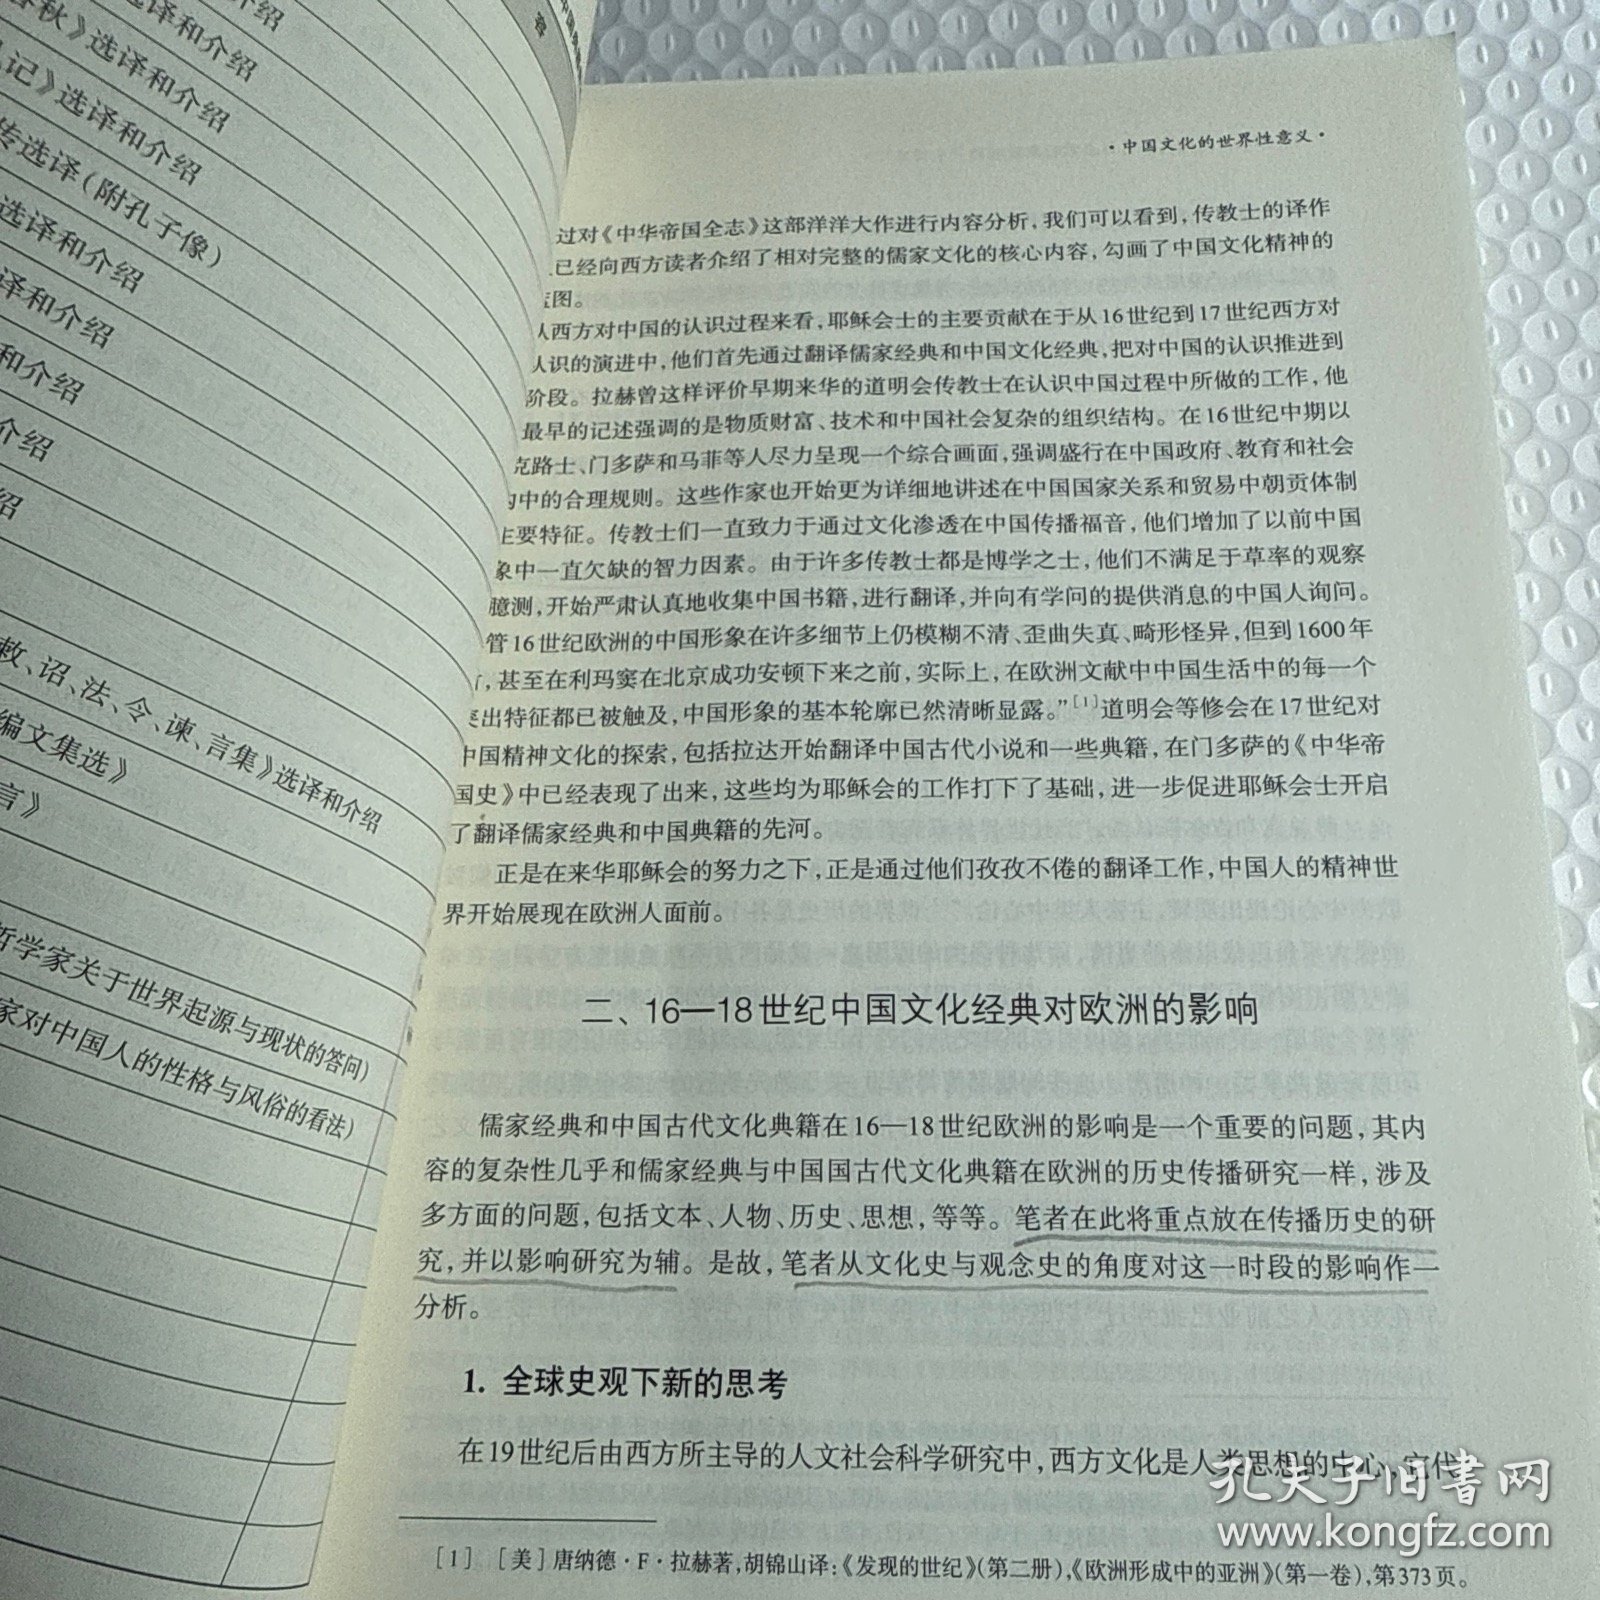 选译和介绍
春秋》选译和介绍
礼记》选译和介绍
传选译(附孔子像)
选译和介绍
译和介绍
和介绍
介绍
绍
敕、诏、法、令、谏、言集》选译和介绍
编文集选》
言》
哲学家关于世界起源与现状的答问)
家对中国人的性格与风俗的看法)
容
·中国文化的世界性意义·
过对《中华帝国全志》这部洋洋大作进行内容分析,我们可以看到,传教士的译作
已经向西方读者介绍了相对完整的儒家文化的核心内容,勾画了中国文化精神的
图。
从西方对中国的认识过程来看,耶稣会士的主要贡献在于从16世纪到17世纪西方对
认识的演进中,他们首先通过翻译儒家经典和中国文化经典,把对中国的认识推进到
阶段。拉赫曾这样评价早期来华的道明会传教士在认识中国过程中所做的工作,他
最早的记述强调的是物质财富、技术和中国社会复杂的组织结构。在16世纪中期以
克路士、门多萨和马菲等人尽力呈现一个综合画面,强调盛行在中国政府、教育和社会
中的合理规则。这些作家也开始更为详细地讲述在中国国家关系和贸易中朝贡体制
主要特征。传教士们一直致力于通过文化渗透在中国传播福音,他们增加了以前中国
象中一直欠缺的智力因素。由于许多传教士都是博学之士,他们不满足于草率的观察
臆测,开始严肃认真地收集中国书籍,进行翻译,并向有学问的提供消息的中国人询问。
管16世纪欧洲的中国形象在许多细节上仍模糊不清、歪曲失真、畸形怪异,但到1600年
,甚至在利玛窦在北京成功安顿下来之前,实际上,在欧洲文献中中国生活中的每一个
突出特征都已被触及,中国形象的基本轮廓已然清晰显露。”[1]道明会等修会在17世纪对
中国精神文化的探索,包括拉达开始翻译中国古代小说和一些典籍,在门多萨的《中华帝
国史》中已经表现了出来,这些均为耶稣会的工作打下了基础,进一步促进耶稣会士开启
了翻译儒家经典和中国典籍的先河。
正是在来华耶稣会的努力之下,正是通过他们孜孜不倦的翻译工作,中国人的精神世
界开始展现在欧洲人面前。
二、16—18世纪中国文化经典对欧洲的影响
儒家经典和中国古代文化典籍在16—18世纪欧洲的影响是一个重要的问题,其内
容的复杂性几乎和儒家经典与中国国古代文化典籍在欧洲的历史传播研究一样,涉及
多方面的问题,包括文本、人物、历史、思想,等等。笔者在此将重点放在传播历史的研
究,并以影响研究为辅。是故,笔者从文化史与观念史的角度对这一时段的影响作一
分析。
1. 全球史观下新的思考
在19世纪后由西方所主导的人文社会科学研究中,西方文化是人类思想的中心,它代
[1] [美]唐纳德·F·拉赫著,胡锦山译:《发现的世纪》(第二册),《欧洲形成中的亚洲》(第一卷),第373页。
孔夫子旧书网
www.kongfz.com